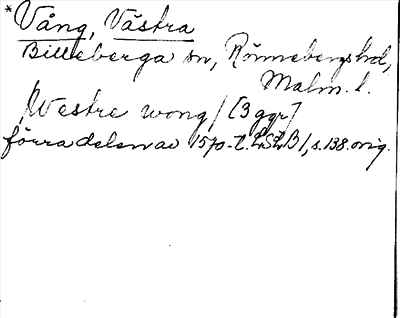 *Vång, Västra
Billeberga sn, Rönnebergs hd,
Malm. l.
Westre wong/ [3 ggr]
förra delen av 1570-t. LSLB 1, s. 138. orig.